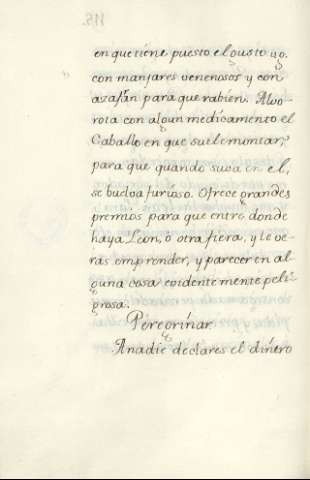 en que tiene puesto el gusto yo.
con manjares venenosos y con
azafrán para que rabien. Alvo-
rota con algun medicamento el
Caballo en que suele montar,
para que quando suva en el,
se buelva furioso. Ofrece grandes
premios para que entre donde
haya Leon, ó otra fiera, y le ve-
rás emprender, y parecer en al-
guna cosa evidentemente peli-
grosa.
Peregrinar
A nadie declares el dinero